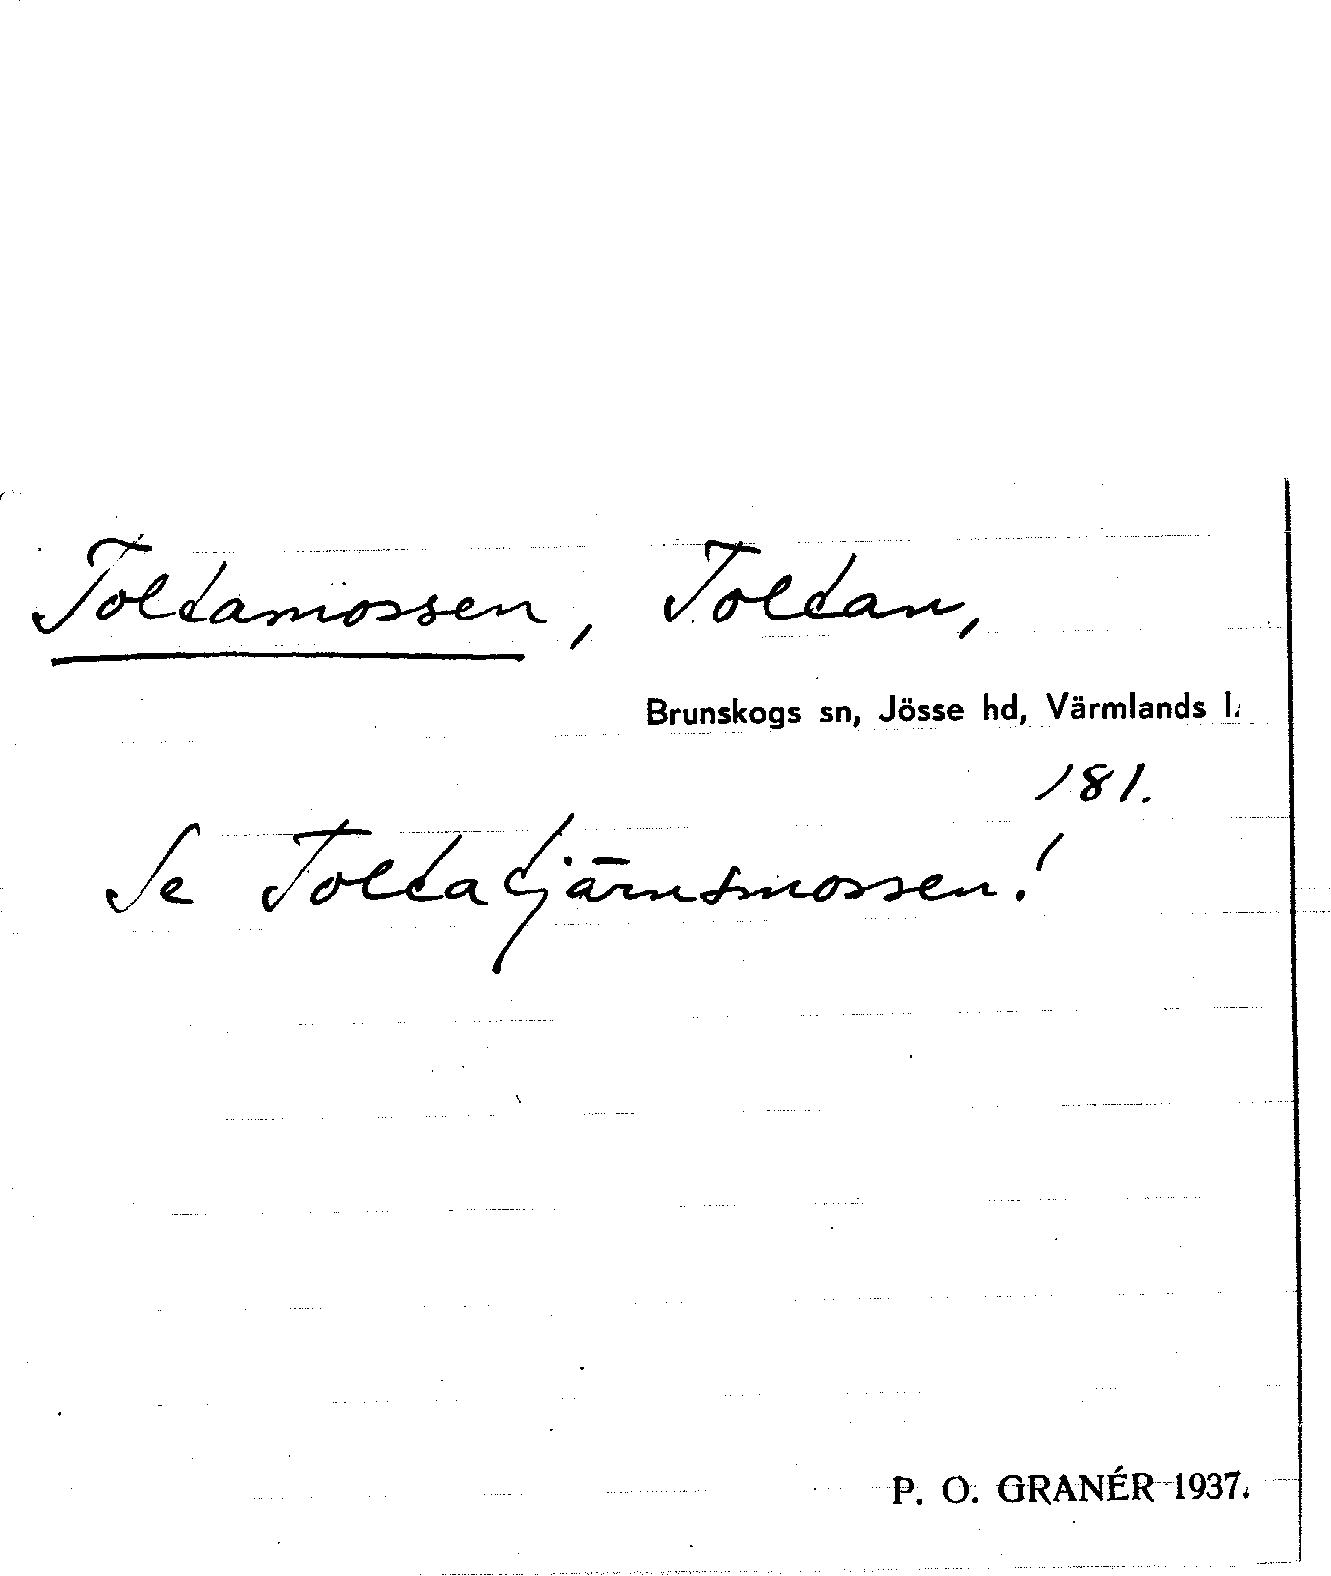 Toltamossen, Toltan,
Brunskogs sn, Jösse hd, Värmlands l.
181.
Se Toltatjärnsmossen!
P. O. GRANÉR 1937.